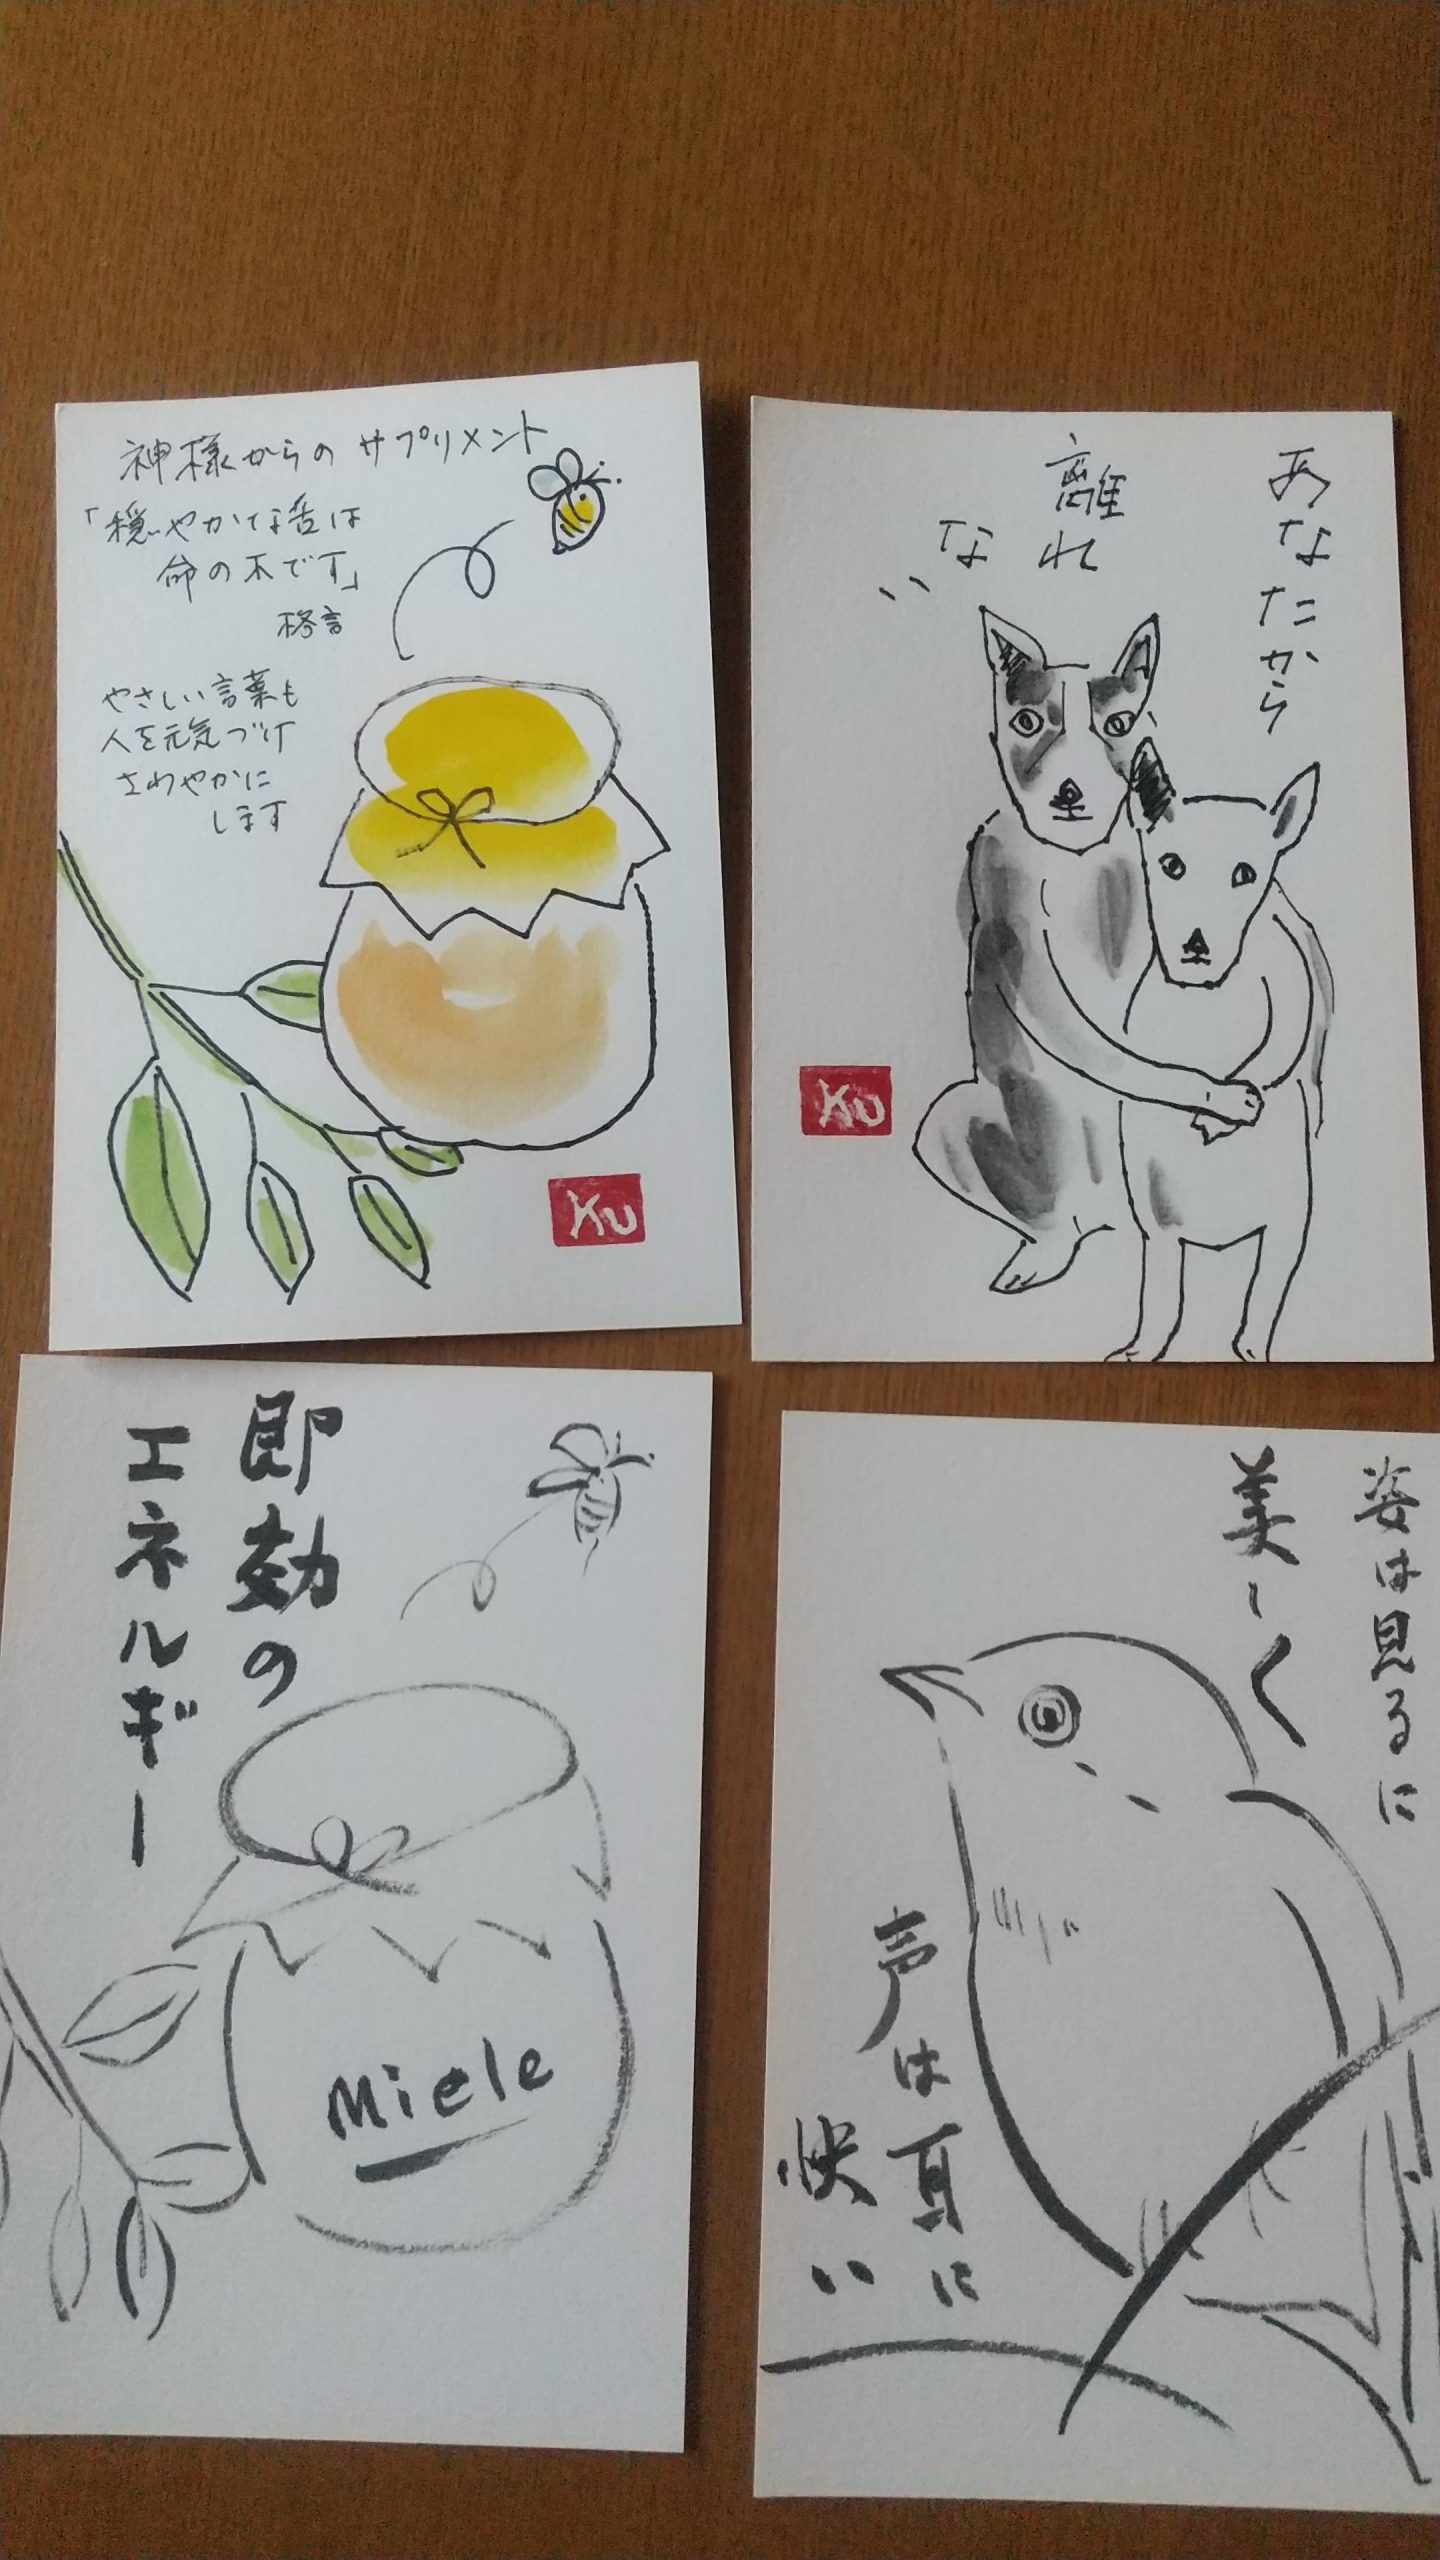 神様からのサプリメント
「穏やかな舌は
命の木です」
格言
やさしい言葉も
人を元気づけ
さわやかに
します
Ku
あなたから
離れ
な
い
Ku
即効の
エネルギー
Miele
姿は見るに
美しく
声は耳に
快い